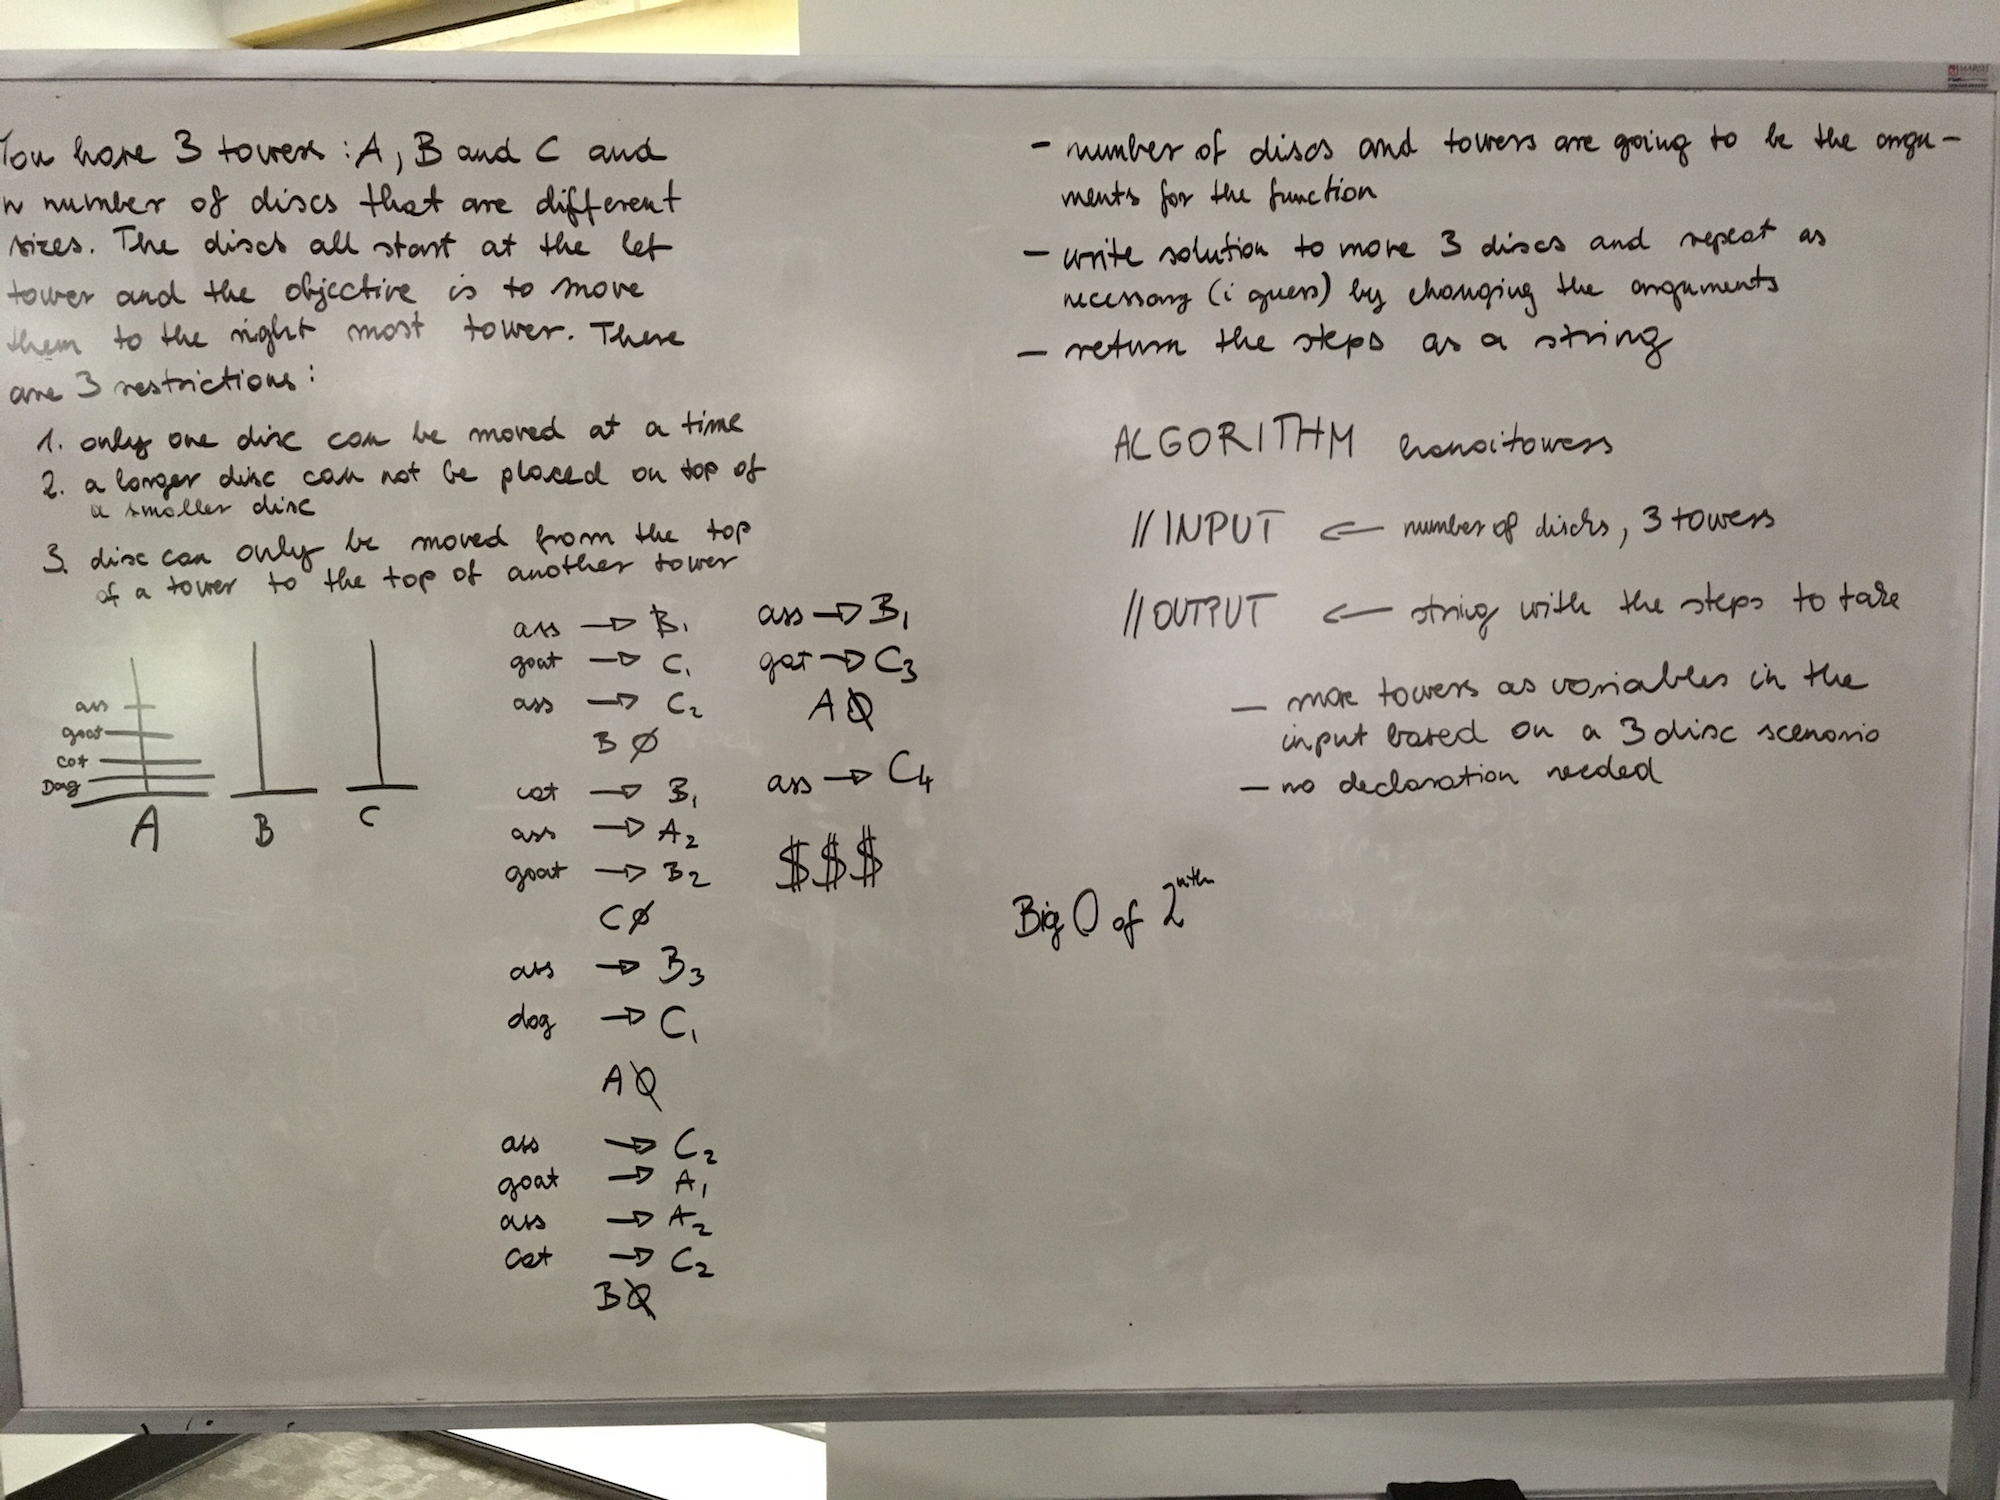 You have 3 towers : A, B and C and
n number of discs that are different
sizes. The discs all start at the let
tower and the objective is to move
them to the right most tower. There
are 3 restrictions :
1. only one disc can be moved at a time
2. a larger disc can not be placed on top of
a smaller disc
3. disc can only be moved from the top
of a tower to the top of another tower
ass
goat
cat
Dog
A B C
ass → B1
goat → C1
ass → C2
B Ø
cat → B1
ass → A2
goat → B2
C Ø
ass → B3
dog → C1
A Ø
ass → C2
goat → A1
ass → A2
cat → C2
B Ø
ass → B1
goat → C3
A Ø
ass → C4
$$$
- number of discs and towers are going to be the argu-
ments for the function
- write solution to move 3 discs and repeat as
necessary (i guess) by changing the arguments
- return the steps as a string
ALGORITHM hanoitowers
// INPUT ← number of discks, 3 towers
// OUTPUT ← string with the steps to take
- more towers as variables in the
input based on a 3 disc scenario
- no declaration needed
Big O of 2^nth